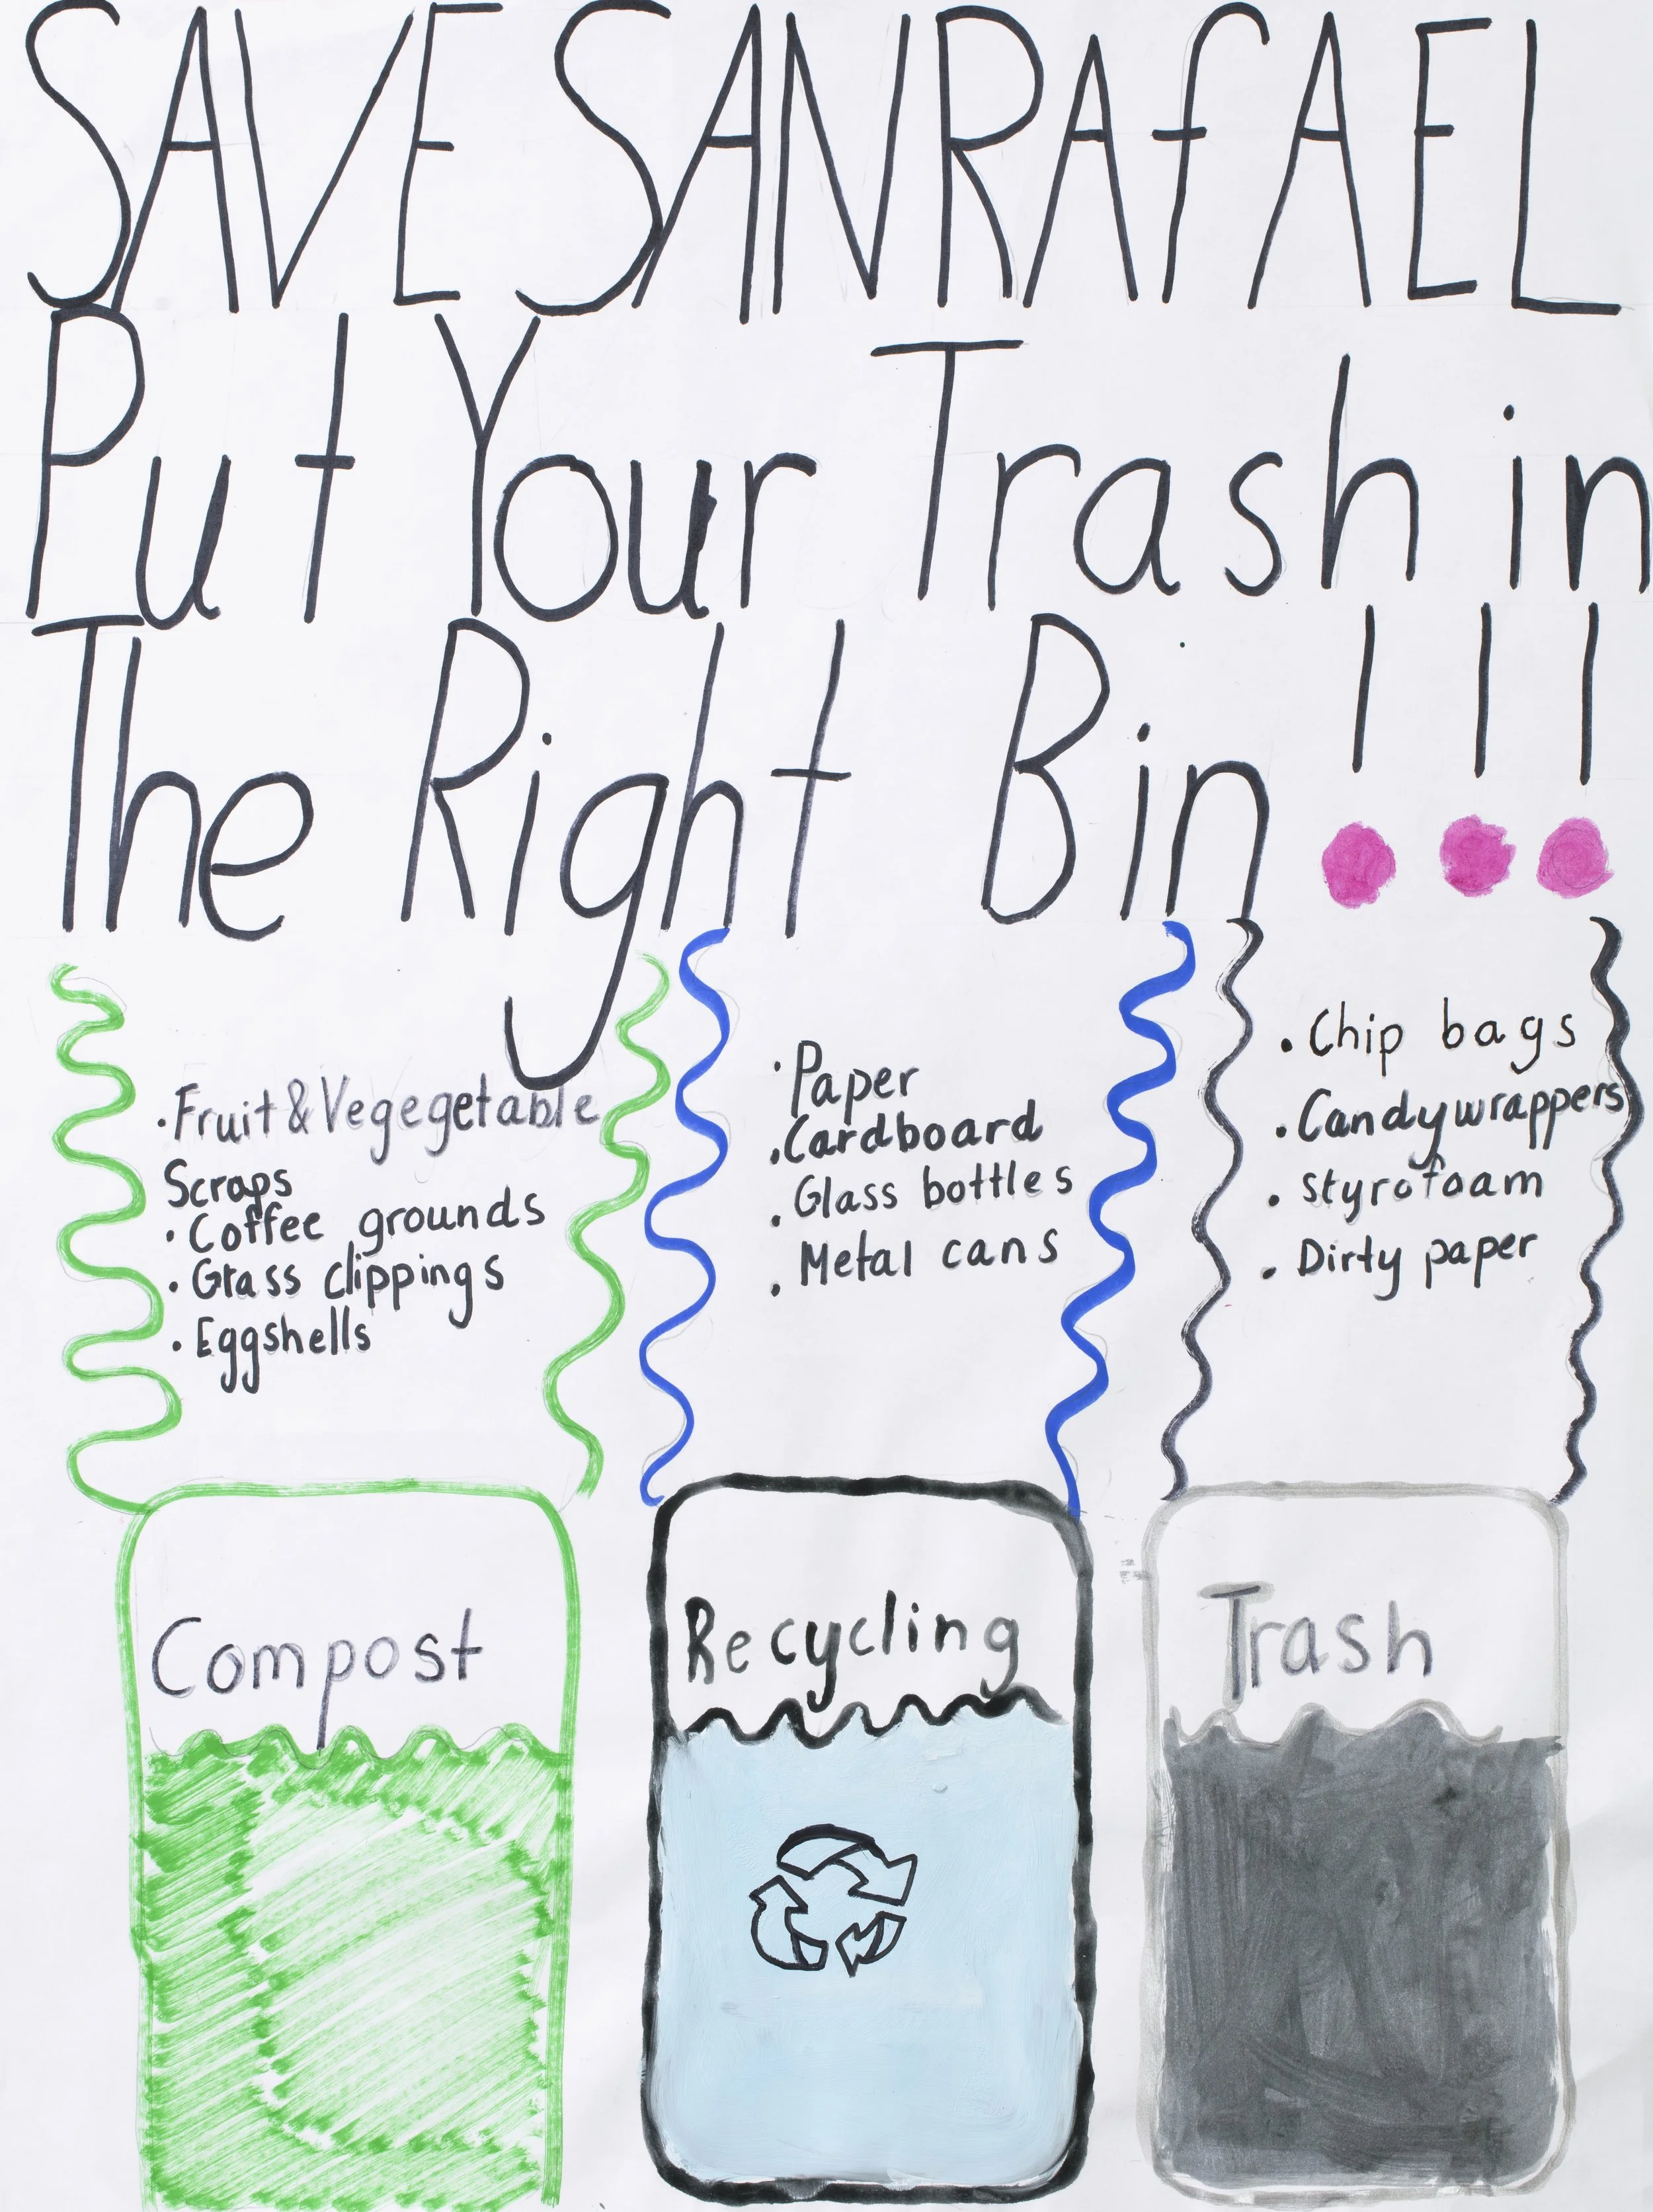 SAVE SAN RAfAEL
Put Your Trash in
The Right Bin!!!
• Fruit & Vegegetable
Scraps
• Coffee grounds
• Grass clippings
• Eggshells
• Paper
• Cardboard
• Glass bottles
• Metal cans
• Chip bags
• Candy wrappers
• styrofoam
• Dirty paper
Compost
Recycling
Trash